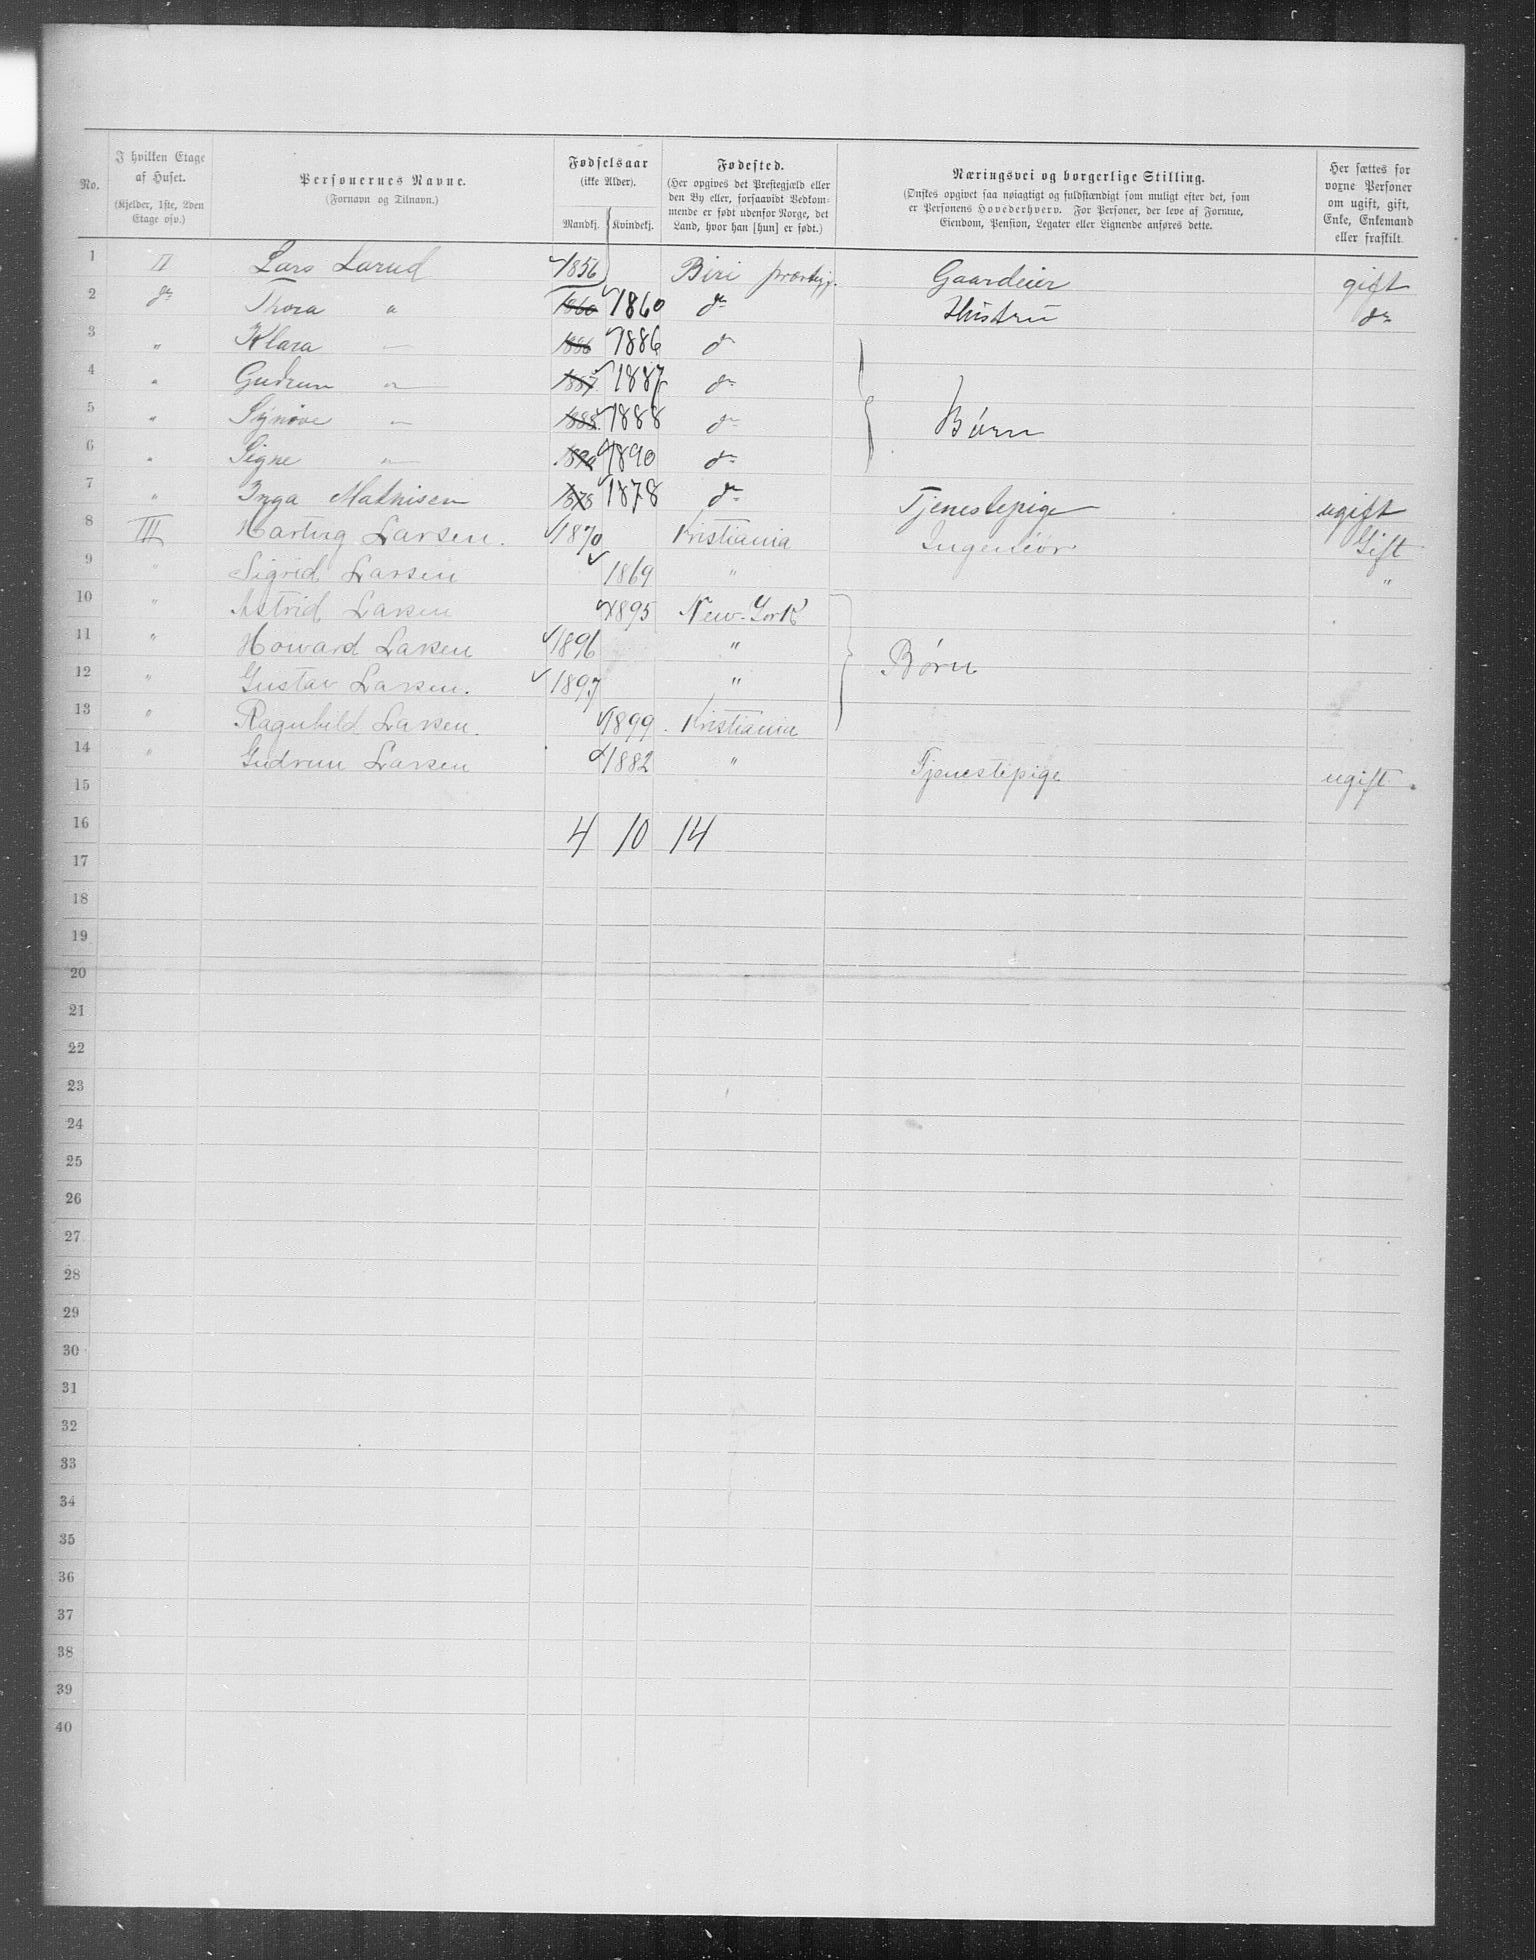 No. I hvilken Etage af Huset. (Kjelder, 1ste, 2den Etage osv.) Personernes Navne. (Fornavn og Tilnavn.) Fødselsaar (ikke Alder). Mandkj. Kvindekj. Fødested. (Her opgives det Prestegjæld eller den By eller, forsaavidt Vedkommende er født udenfor Norge, det Land, hvor han [hun] er født.) Næringsvei og borgerlige Stilling. (Ønskes opgivet saa nøiagtigt og fuldstændigt som muligt efter det, som er Personens Hovederhverv. For Personer, der leve af Formue, Eiendom, Pension, Legater eller Lignende anføres dette.) Her sættes for voxne Personer om ugift, gift, Enke, Enkemand eller fraskilt.
1 II Lars Larud 1856 Biri Gaardeier gift
2 do Thora " 1860 1860 do Hustru do
3 " Klara — 1886 1886 do
4 " Gudrun " 1887 1887 do
5 " Synøve " 1888 1888 do Børn
6 " Signe " 1890 1890 do
7 " Inga Mathisen 1878 1878 do Tjenestepige ugift
8 III Harling Larsen. 1870 Kristiania Ingeniør Gift
9 " Sigrid Larsen 1869 " "
10 " Astrid Larsen 1895 New-York
11 " Howard Larsen 1896 " Børn
12 " Gustav Larsen. 1897 "
13 " Ragnhild Larsen. 1899 Kristiania
14 " Gudrun Larsen 1882 " Tjenestepige ugift.
15
16 4 10 14
17
18
19
20
21
22
23
24
25
26
27
28
29
30
31
32
33
34
35
36
37
38
39
40